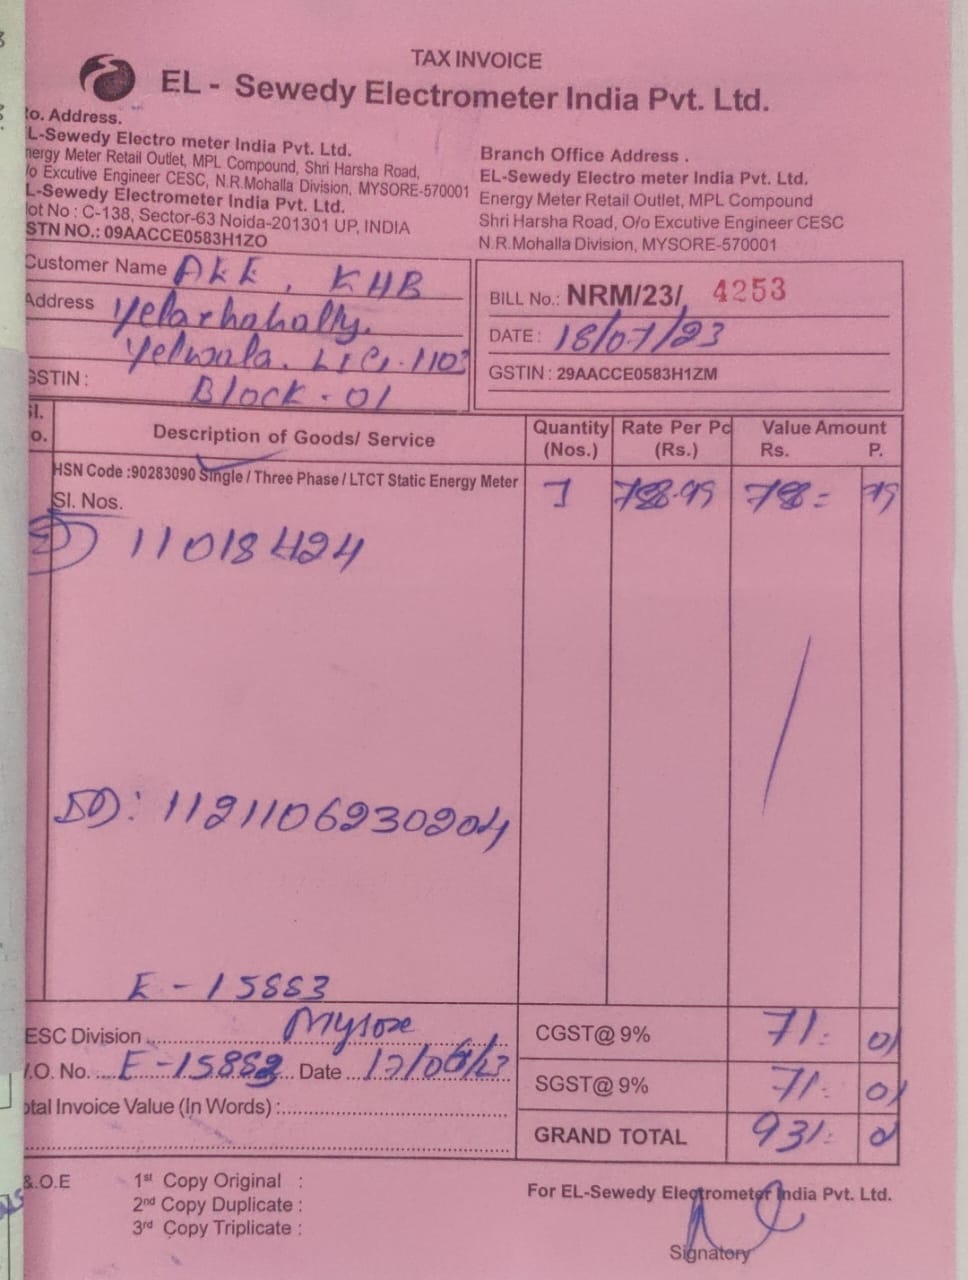 TAX INVOICE
EL - Sewedy Electrometer India Pvt. Ltd.
o. Address.
L-Sewedy Electro meter India Pvt. Ltd.
nergy Meter Retail Outlet, MPL Compound, Shri Harsha Road,
/o Excutive Engineer CESC, N.R.Mohalla Division, MYSORE-570001
L-Sewedy Electrometer India Pvt. Ltd.
lot No : C-138, Sector-63 Noida-201301 UP, INDIA
STN NO.: 09AACCE0583H1ZO
Branch Office Address .
EL-Sewedy Electro meter India Pvt. Ltd.
Energy Meter Retail Outlet, MPL Compound
Shri Harsha Road, O/o Excutive Engineer CESC
N.R.Mohalla Division, MYSORE-570001
Customer Name AEE, KHB
Address Yelachahally.
Yelwala. LIG-110
GSTIN : Block-01
BILL No.: NRM/23/ 4253
DATE : 18/07/23
GSTIN : 29AACCE0583H1ZM
Sl. o. Description of Goods/ Service Quantity (Nos.) Rate Per Pc (Rs.) Value Amount Rs. P.
HSN Code :90283090 Single / Three Phase / LTCT Static Energy Meter 1
Sl. Nos.
11018424
DD: 1121106230204
E-15883
ESC Division Mysore
.O. No. Date
otal Invoice Value (In Words) :
CGST@ 9% 71. 01
SGST@ 9% 71. 01
GRAND TOTAL 931.
&.O.E
1st Copy Original :
2nd Copy Duplicate :
3rd Copy Triplicate :
For EL-Sewedy Electrometer India Pvt. Ltd.
Signatory